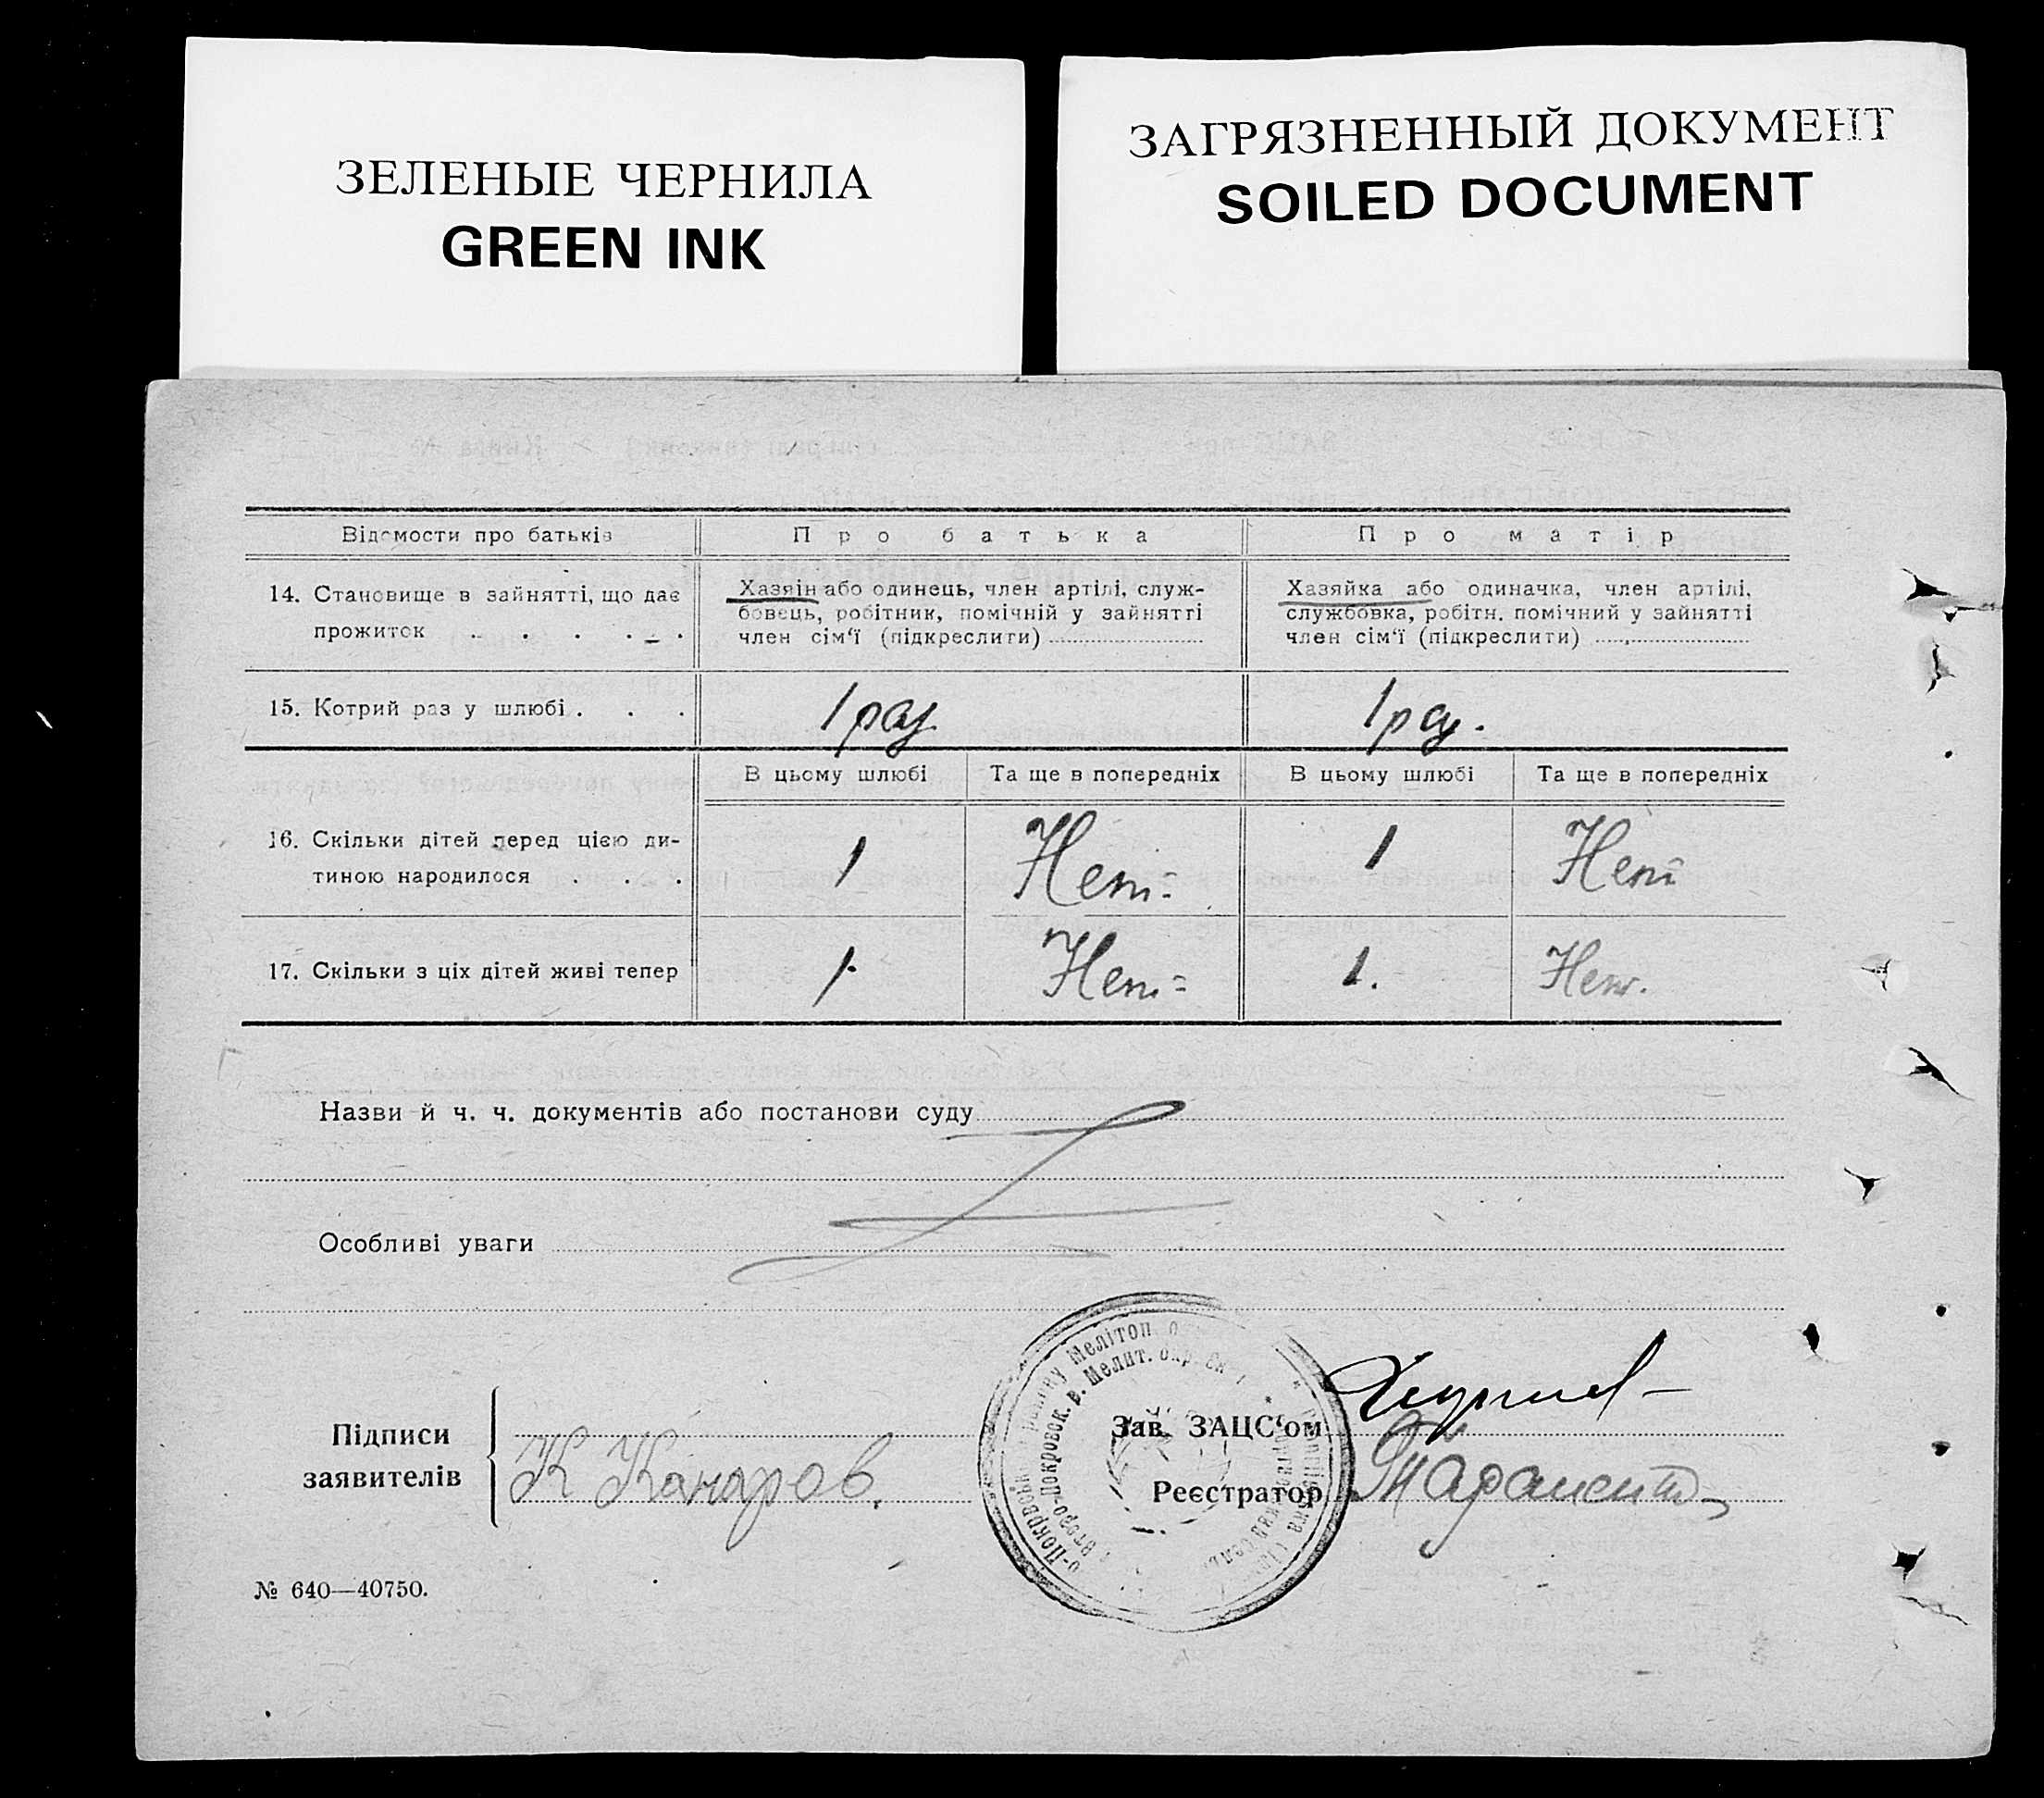 ЗЕЛЕНЫЕ ЧЕРНИЛА
GREEN INK
ЗАГРЯЗНЕННЫЙ ДОКУМЕНТ
SOILED DOCUMENT
Відомости про батьків
Про батька
Про матір
14. Становище в зайнятті, що дає
прожиток . . . . .
Хазяін або одинець, член артілі, служ-
бовець, робітник, помічній у зайнятті
член сім‘ї (підкреслити)
Хазяйка або одиначка, член артілі,
службовка, робітн. помічний у зайнятті
член сім‘ї (підкреслити)
15. Котрий раз у шлюбі . . .
1 раз
1 раз.
В цьому шлюбі
Та ще в попередніх
В цьому шлюбі
Та ще в попередніх
16. Скільки дітей перед цією ди-
тиною народилося . . .
1
Нет
1
Нет
17. Скільки з ціх дітей живі тепер
1
Нет
1.
Нет.
Назви й ч. ч. документів або постанови суду
Особливі уваги
Підписи
заявителів
К Канаров.
Зав. ЗАЦС‘ом
Реєстратор
Мелітоп
Второ-Покровск. в. Мелит. окр.
№ 640—40750.